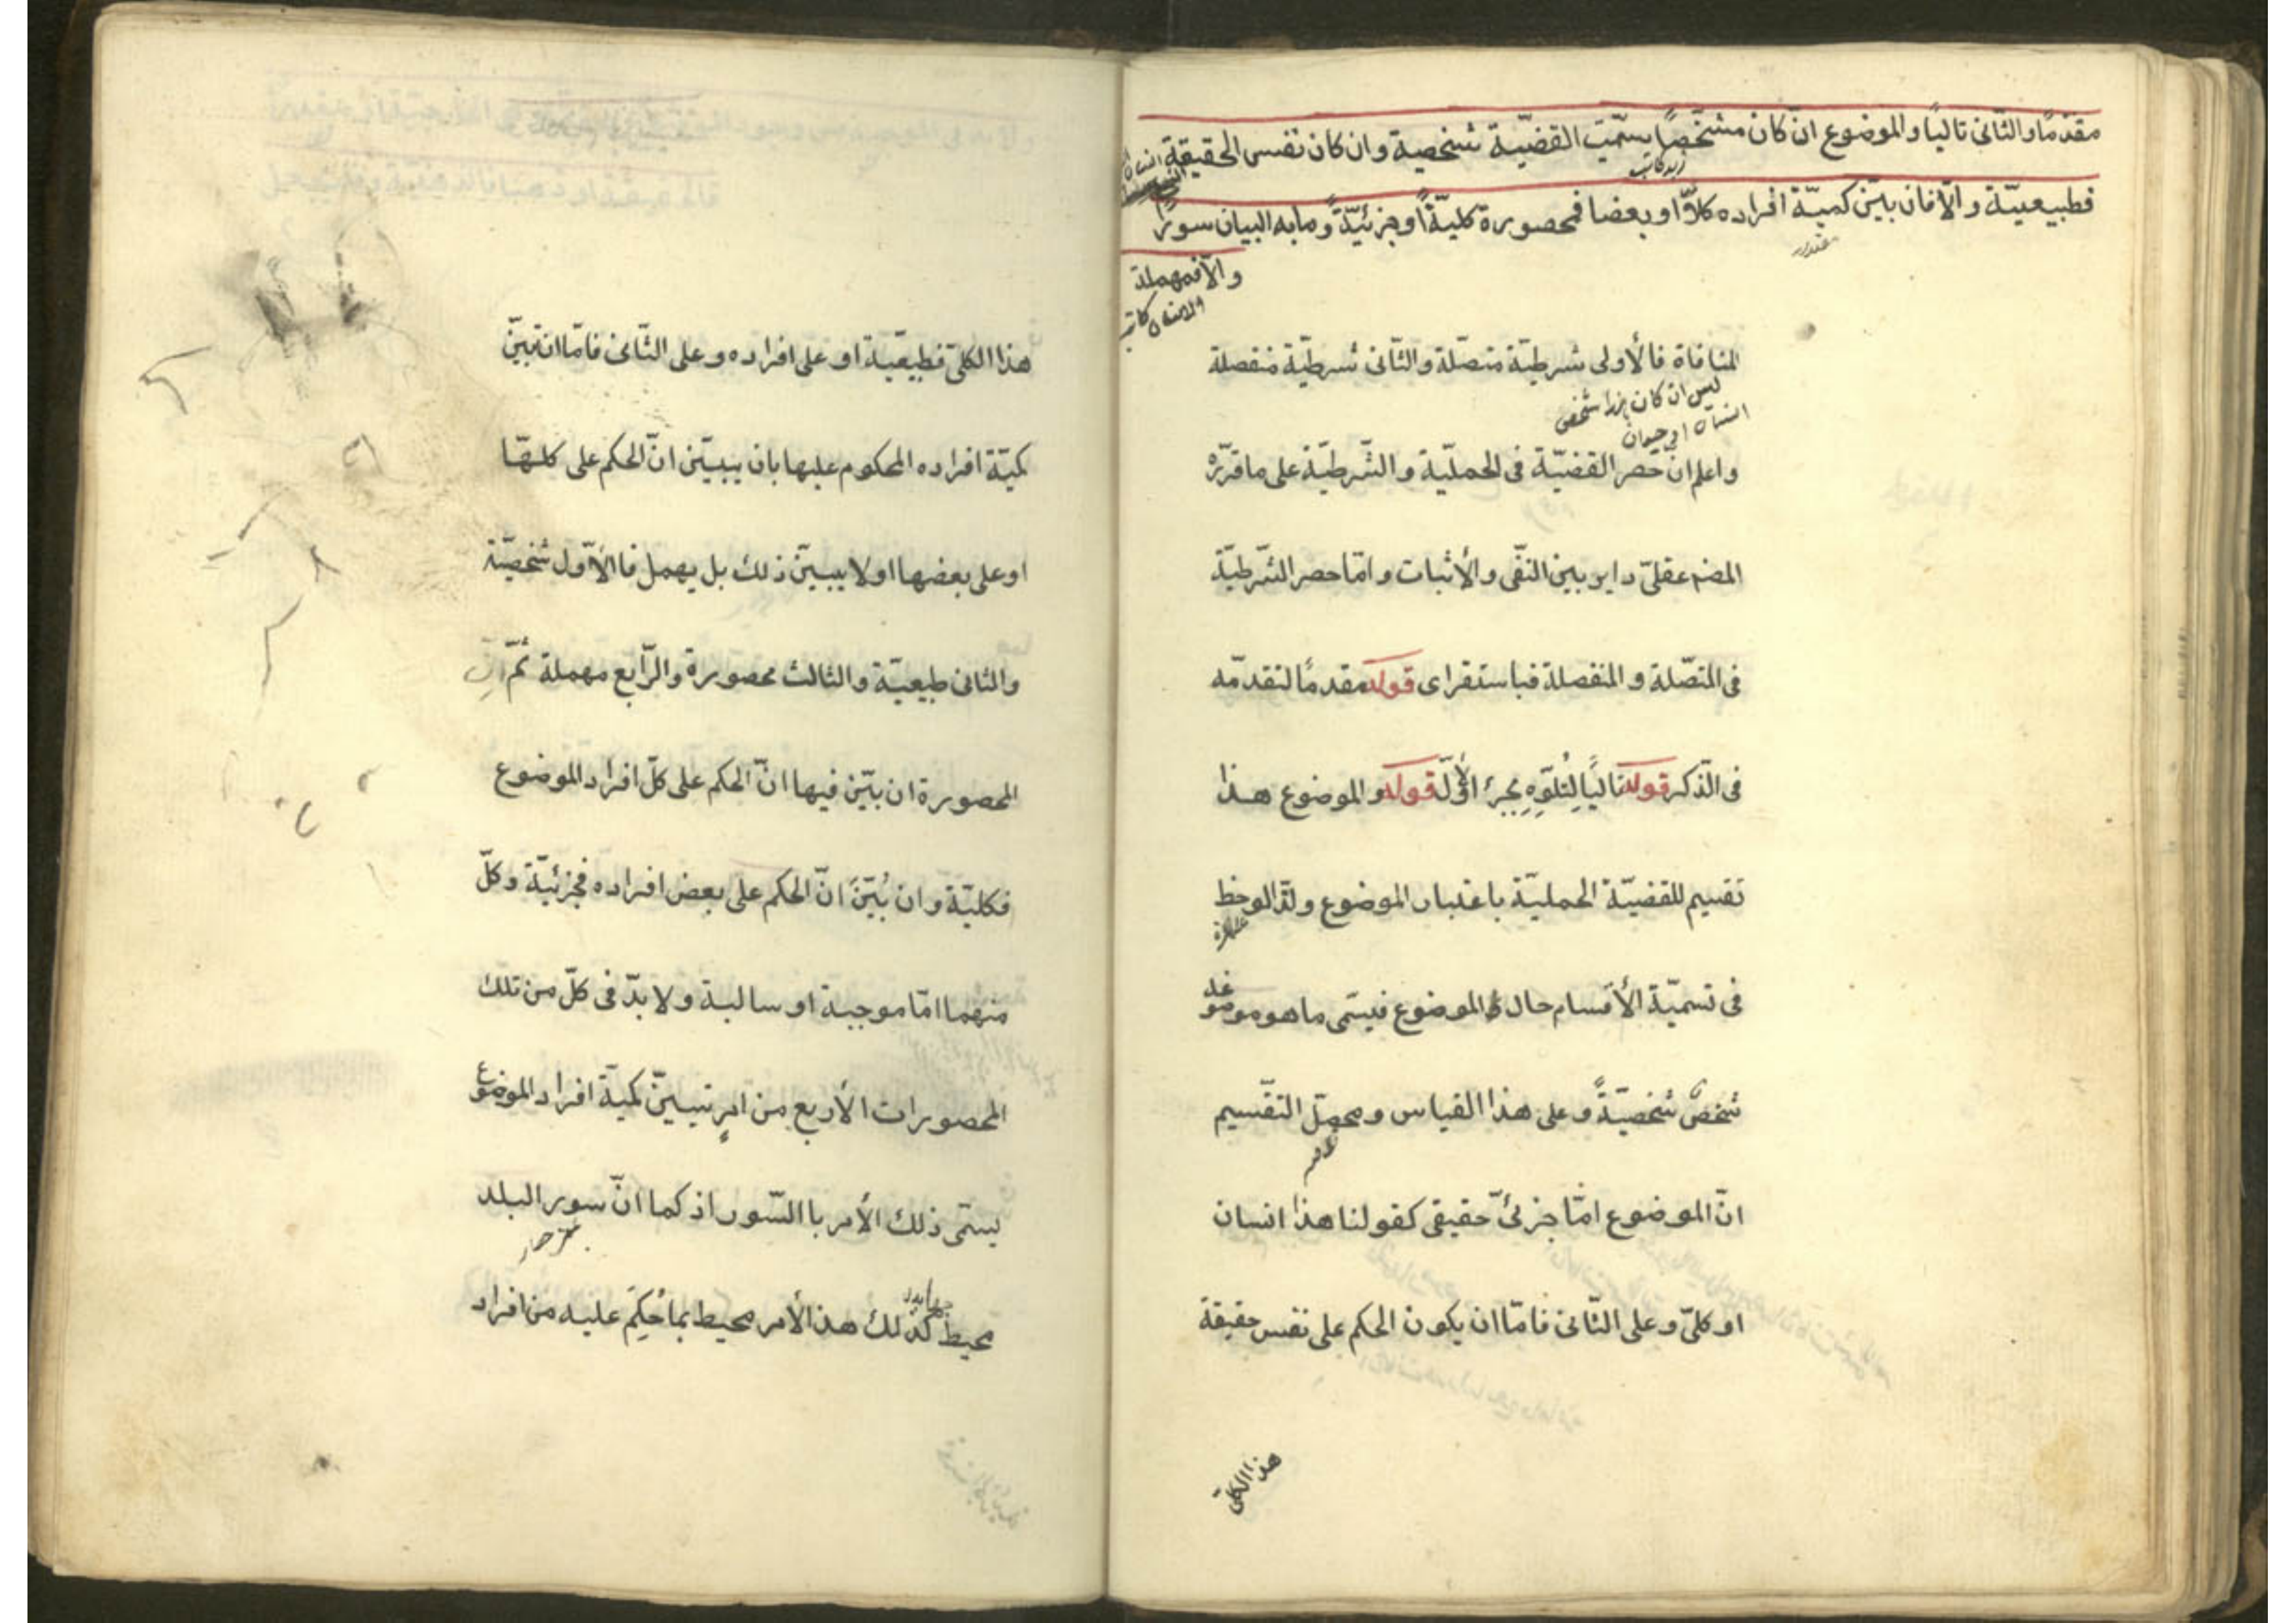 مقدّمًا والثّانى تاليًا والموضوع ان كان مشخّصًا يسمّيت القضيّة شخصية وان كان نفس الحقيقة
زيد كاتب
فطبيعيّة والّا فان بيّن كميّة افراده كلًّا او بعضا فمحصورة كليّةً او جزئيّةً وما به البيان سورٌ
مقدار
والّا فمهملة
والانسان كاتب
المنافاة فالأولى شرطيّة متصّلة والثّانى شرطيّة منفصلة
ليس ان كان هذا شخص
انسان او حيوان
واعلم انّ حصر القضيّة فى الحمليّة والشّرطيّة على ما قرّره
المصنّ عقلىّ داير بين النّفى والأثبات وامّا حصر الشّرطيّة
فى المتصّلة والمنفصلة فباستقراى قوله مقدمًا لتقدمّه
فى الذّكر قوله تاليًا لِتُلوّهِ بجزء الأوّل قوله والموضوع هذا
تقسيم للقضيّة الحمليّة باعتبار الموضوع ولذا لوحظ
فى تسميّة الأقسام حال الموضوع فيسمّى ما هو موضوعه
شخصٌ شخصيّةً وعلى هذا القياس ومحصّل التقّسيم
انّ الموضوع امّا جزئىّ حقيقى كقولنا هذا انسان
او كلىّ وعلى الثّانى فامّا ان يكون الحكم على نفس حقيقة
هذا الكلىّ
هذا الكلىّ فطبيعيّة او على افراده وعلى الثّانى فامّا ان تبيّن
كميّة افراده المحكوم عليها بان يبيّن انّ الحكم على كلّها
او على بعضها او لا يبيّن ذلك بل يهمل فالأوّل شخصيّة
والثانى طبيعيّة والثالث محصورة والرّابع مهملة ثمّ انّ
المحصورة ان بيّن فيها انّ الحكم على كلّ افراد الموضوع
فكليّة وان بُيّنَ انّ الحكم على بعض افراده فجزئيّة وكلّ
منهما امّا موجبة او سالبة ولا بدّ فى كلّ من تلك
المحصورات الأربع من امرٍ تبيّن كميّة افراد الموضوع
يسمّى ذلك الأمر باالسّور اذ كما انّ سور البلد
محيط كذلك هذا الأمر محيط بما حُكِمَ عليه من افراد